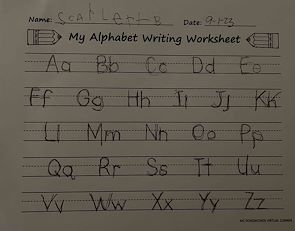 Name: Scarlett B Date: 9-1-23
My Alphabet Writing Worksheet
Aa Bb Cc Dd Ee
Ff Gg Hh Ii Jj Kk
Ll Mm Nn Oo Pp
Qq Rr Ss Tt Uu
Vv Ww Xx Yy Zz